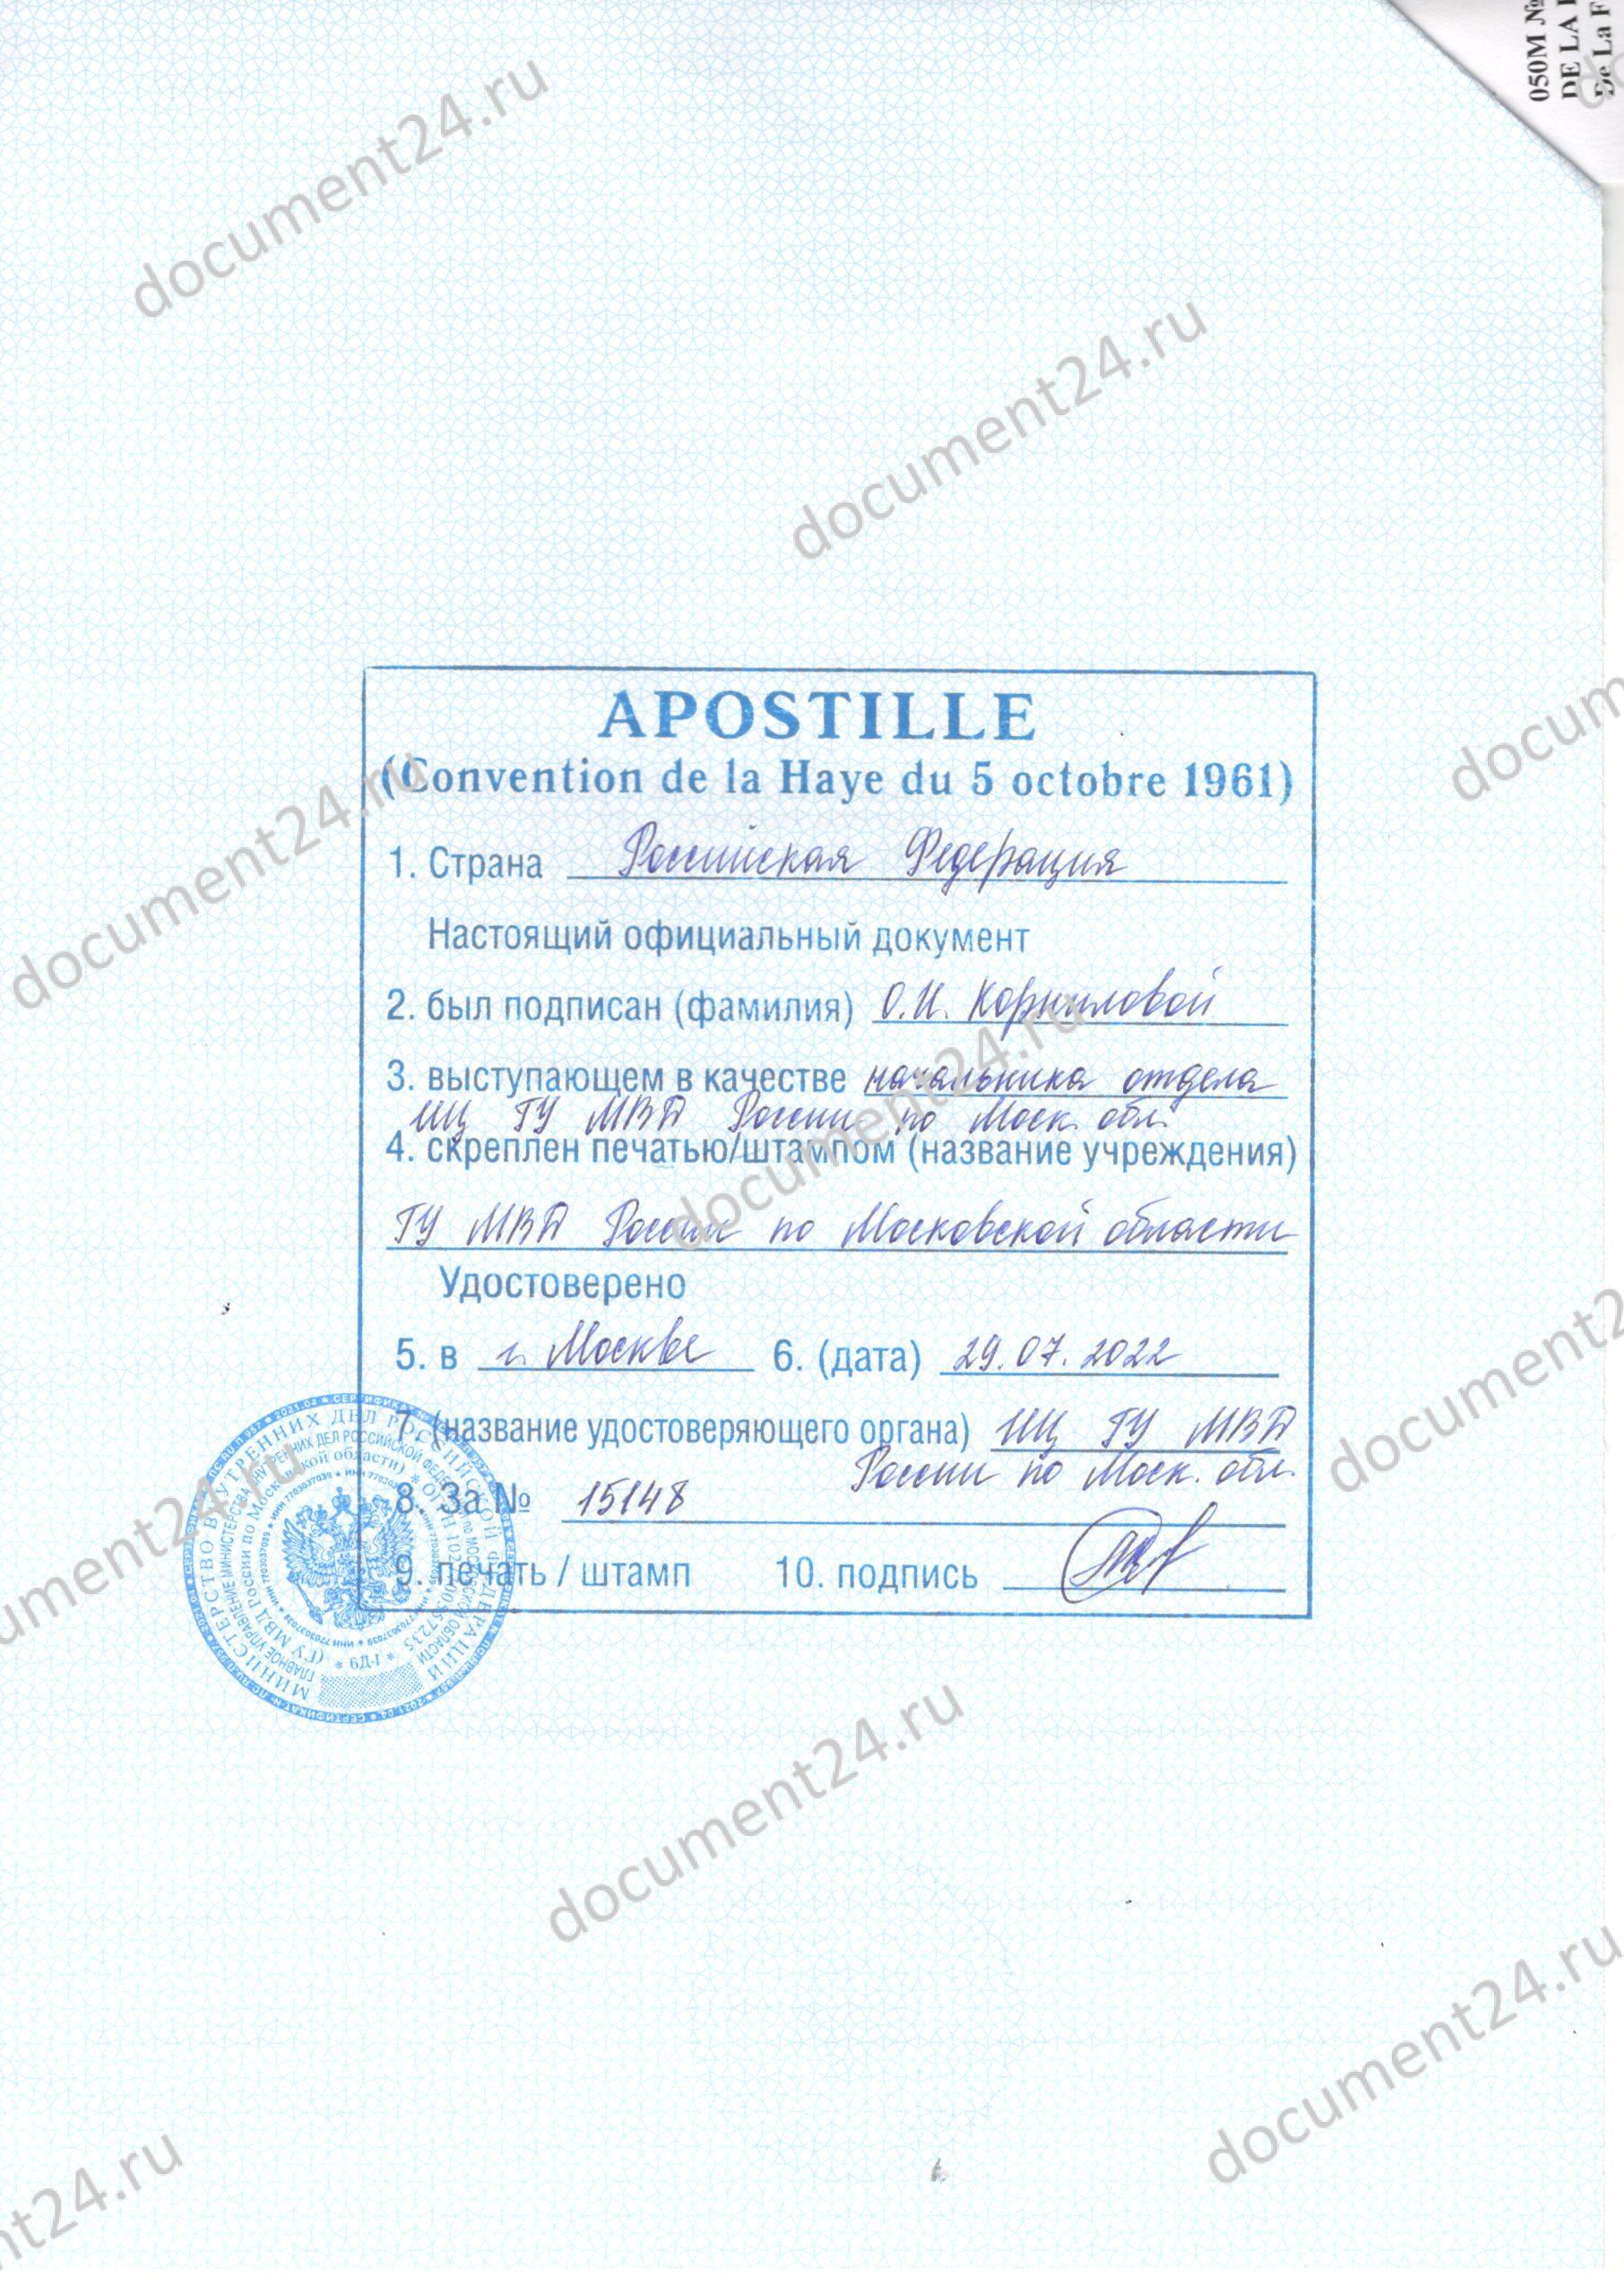 050М №
DE LA
De La F
APOSTILLE
(Convention de la Haye du 5 octobre 1961)
1. Страна Российская Федерация
Настоящий официальный документ
2. был подписан (фамилия) О.И. Корниловой
3. выступающем в качестве начальника отдела
ИЦ ГУ МВД России по Моск. обл.
4. скреплен печатью/штампом (название учреждения)
ГУ МВД России по Московской области
Удостоверено
5. в г. Москве 6. (дата) 29.07.2022
7. (название удостоверяющего органа) ИЦ ГУ МВД
России по Моск. обл.
8. За № 15148
9. печать / штамп 10. подпись
МИНИСТЕРСТВО ВНУТРЕННИХ ДЕЛ РОССИЙСКОЙ ФЕДЕРАЦИИ
ГЛАВНОЕ УПРАВЛЕНИЕ МИНИСТЕРСТВА ВНУТРЕННИХ ДЕЛ РОССИЙСКОЙ ФЕДЕРАЦИИ ПО МОСКОВСКОЙ ОБЛАСТИ
(ГУ МВД России по Московской области) * ОГРН
* ИНН 7703037039 *
* 6Д-1 *
document24.ru
document24.ru
document24.ru
docum
document24.ru
document2
ument24.ru
document24.ru
document24.ru
nt24.ru